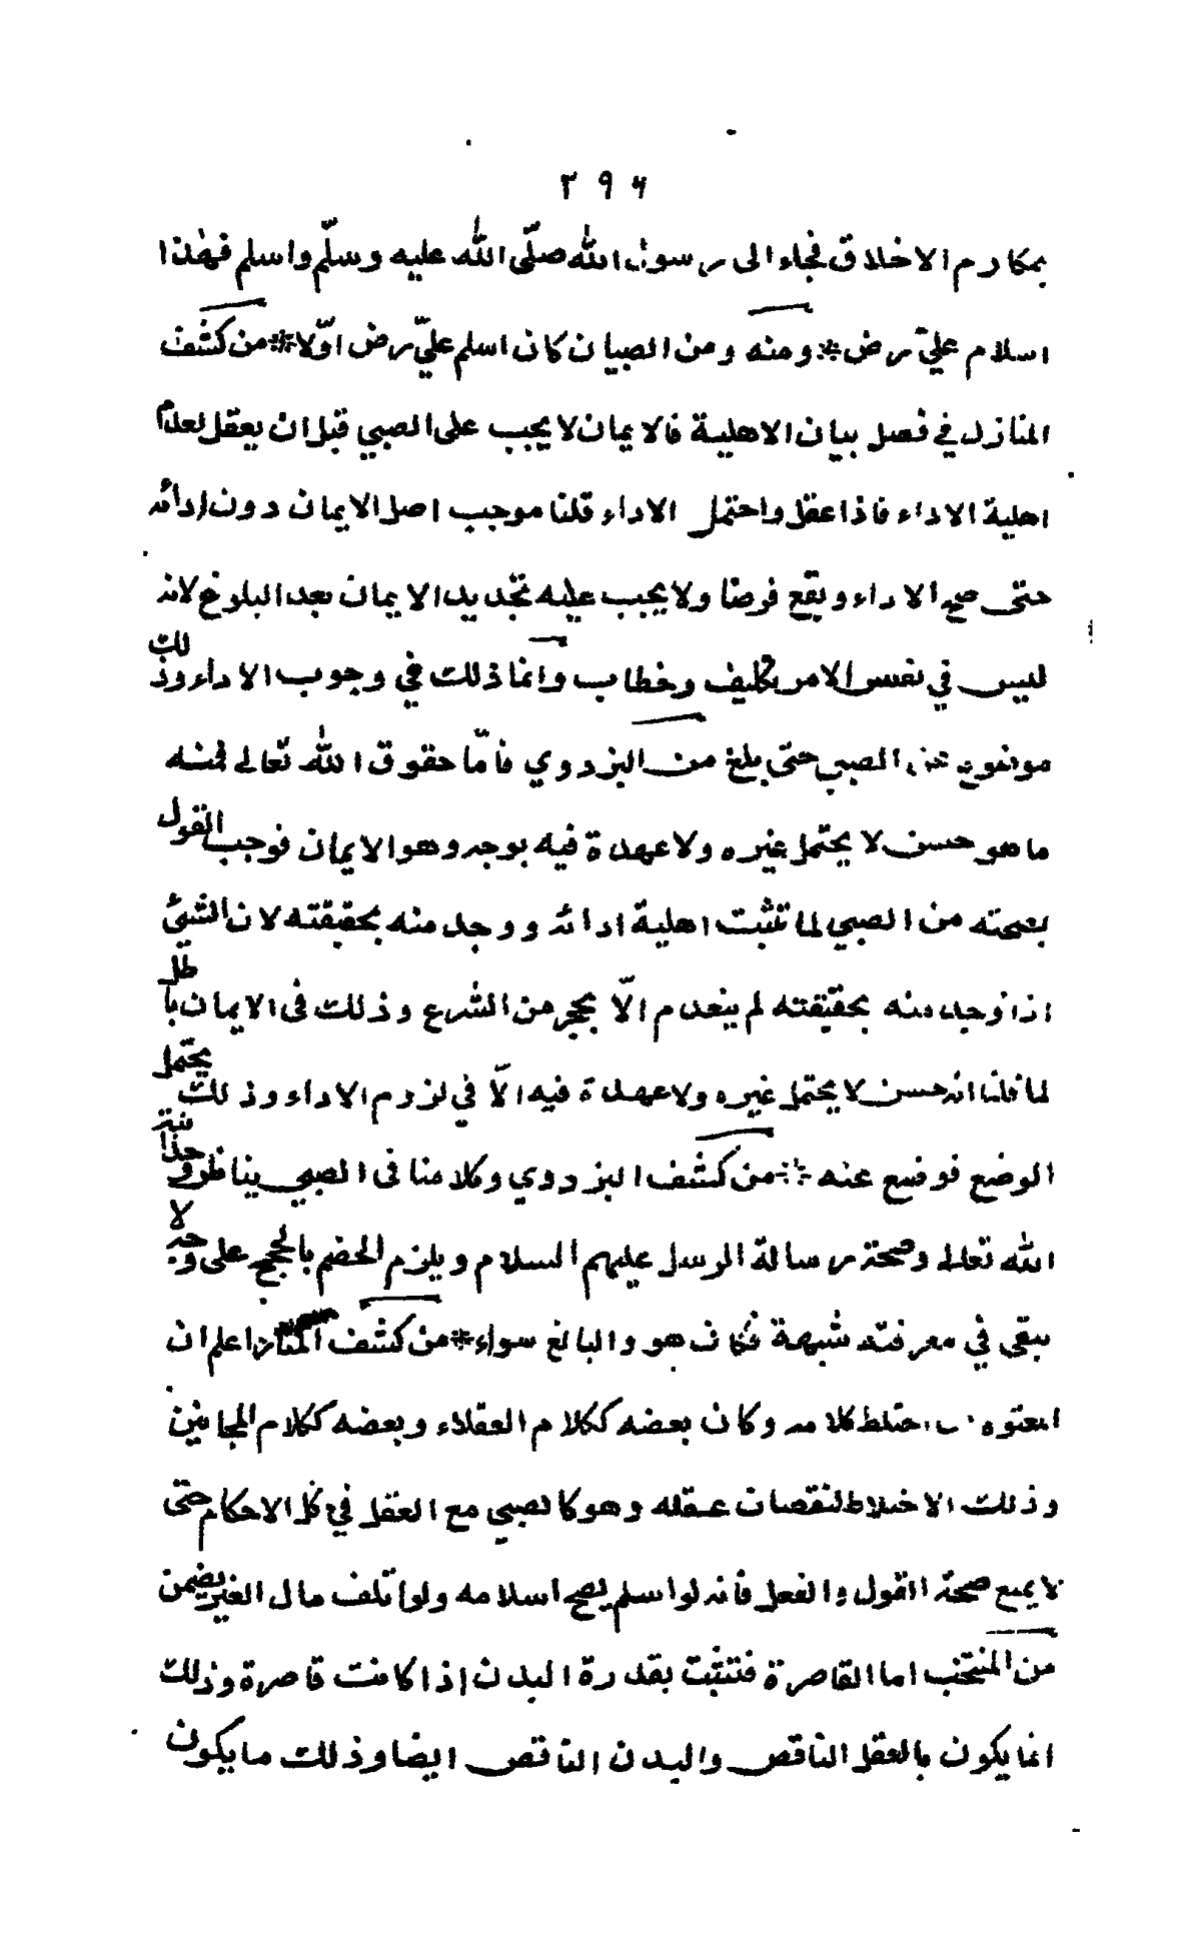 ٢٩٦
بمكارم الاخلاق فجاء الى رسول الله صلّى الله عليه وسلّم واسلم فهذا
اسلام عليّ رض * ومنه ومن الصبيان كان اسلم عليّ رض اوّلا * من كشف
المنازل في فصل بيان الاهلية فالايمان لا يجب على الصبي قبل ان يعقل لعدم
اهلية الاداء فاذا عقل واحتمل الاداء قلنا موجب اصل الايمان دون ادائه
حتى صح الاداء ويقع فرضا ولا يجب عليه تجديد الايمان بعد البلوغ لانه
ليس في نفس الامر تكليف وخطاب وانما ذلك في وجوب الاداء وذلك
موضوع عن الصبي حتى يبلغ من البزدوي فامّا حقوق الله تعالى فمنه
ما هو حسن لا يحتمل غيره ولا عهدة فيه بوجه وهو الايمان فوجب القول
بصحته من الصبي لما تثبت اهلية ادائه ووجد منه بحقيقته لان الشيئ
اذا وجد منه بحقيقته لم ينعدم الّا بحجر من الشرع وذلك فى الايمان باطل
لما قلنا انه حسن لا يحتمل غيره ولا عهدة فيه الّا في لزوم الاداء وذلك يحتمل
الوضع فوضع عنه * من كشف البزدوي وكلامنا فى الصبي يناظر وحدانية
الله تعالى وصحة رسالة الرسل عليهم السلام ويلزم الخصم بالحجج على وجه لا
يبقى في معرفته شبهة فكان هو والبالغ سواء * من كشف المنار اعلم ان
المعتوه من اختلط كلامه وكان بعضه ككلام العقلاء وبعضه ككلام المجانين
وذلك الاختلاط لنقصان عقله وهو كالصبي مع العقل في كل الاحكام حتى
لا يمنع صحة القول والفعل فانه لو اسلم يصح اسلامه ولو اتلف مال الغير يضمن
من المنتخب اما القاصرة فتثبت بقدرة البدن اذا كانت قاصرة وذلك
انما يكون بالعقل الناقص والبدن الناقص ايضا وذلك ما يكون